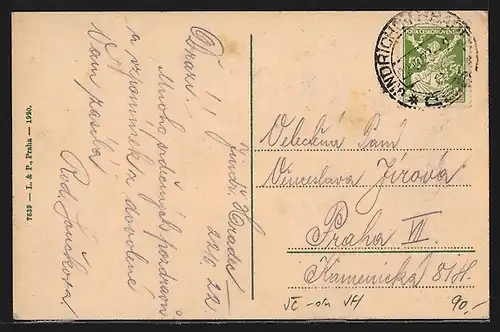 7639 — L. & P., Praha — 1920.
Drazí!!
Mnoho srdečných pozdravů
a vzpomínek z dovolené
Vám zasílá
Rod. Janskova
Jindř. Hradec
22/8 22
POŠTA ČESKOSLOVENSKÁ
50 50
JINDŘICHŮV HRADEC
Velectěná Paní
Věnceslava Jírová
Praha VII.
Kamenická 8/II.
90.-